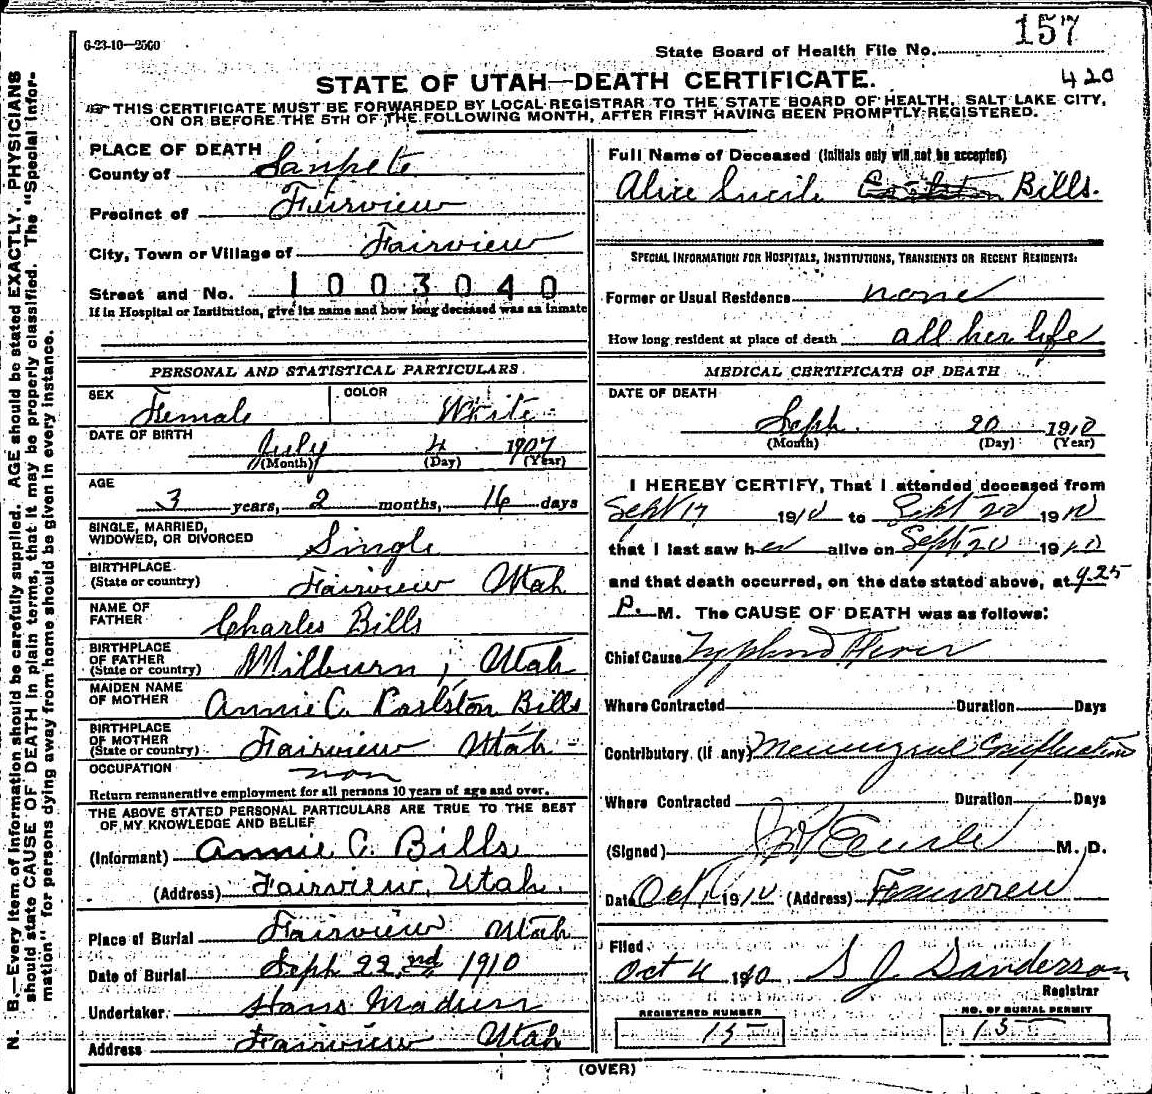 6-23-10—2500
State Board of Health File No. 157
420
STATE OF UTAH—DEATH CERTIFICATE.
THIS CERTIFICATE MUST BE FORWARDED BY LOCAL REGISTRAR TO THE STATE BOARD OF HEALTH, SALT LAKE CITY,
ON OR BEFORE THE 5TH OF THE FOLLOWING MONTH, AFTER FIRST HAVING BEEN PROMPTLY REGISTERED.
N. B.—Every item of information should be carefully supplied. AGE should be stated EXACTLY. PHYSICIANS
should state CAUSE OF DEATH in plain terms, that it may be properly classified. The "Special Infor-
mation" for persons dying away from home should be given in every instance.
PLACE OF DEATH
County of Sanpete
Precinct of Fairview
City, Town or Village of Fairview
Street and No. 1003040
If in Hospital or Institution, give its name and how long deceased was an inmate
PERSONAL AND STATISTICAL PARTICULARS.
SEX Female COLOR White
DATE OF BIRTH July 4 1907
(Month) (Day) (Year)
AGE
3 years, 2 months, 16 days
SINGLE, MARRIED,
WIDOWED, OR DIVORCED Single
BIRTHPLACE
(State or country) Fairview Utah
NAME OF
FATHER Charles Bills
BIRTHPLACE
OF FATHER
(State or country) Milburn, Utah
MAIDEN NAME
OF MOTHER Annie C. Carlston Bills
BIRTHPLACE
OF MOTHER
(State or country) Fairview Utah
OCCUPATION non
Return remunerative employment for all persons 10 years of age and over.
THE ABOVE STATED PERSONAL PARTICULARS ARE TRUE TO THE BEST
OF MY KNOWLEDGE AND BELIEF
(Informant) Annie C. Bills
(Address) Fairview, Utah.
Place of Burial Fairview Utah
Date of Burial Seph 22nd 1910
Undertaker Hans
Address Fairview Utah
Full Name of Deceased (Initials only will not be accepted)
Alice Lucile Carlston Bills.
SPECIAL INFORMATION FOR HOSPITALS, INSTITUTIONS, TRANSIENTS OR RECENT RESIDENTS:
Former or Usual Residence none
How long resident at place of death all her life
MEDICAL CERTIFICATE OF DEATH
DATE OF DEATH
Seph. 20 1910
(Month) (Day) (Year)
I HEREBY CERTIFY, That I attended deceased from
Sept 17 1910 to Sept 20 1910
that I last saw her alive on Sept 20 1910
and that death occurred, on the date stated above, at 9.25
P. M. The CAUSE OF DEATH was as follows:
Chief Cause Typhoid Fever
Where Contracted Duration Days
Contributory (if any) Meningeal
Where Contracted Duration Days
(Signed) M. D.
Date Oct 1 1910 (Address) Fairview
Filed
Oct 4 1910 S J Sanderson
Registrar
REGISTERED NUMBER
15
NO. OF BURIAL PERMIT
15
(OVER)